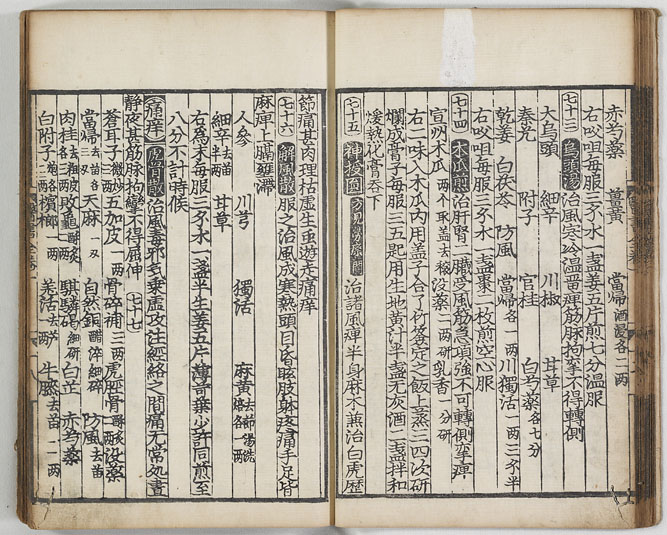 赤芍藥 薑黃 當歸酒浸各一兩
右㕮咀每服三錢水一盞姜五片煎七分溫服
七十三 烏頭湯 治風寒冷溫留痺筋脉拘攣不得轉側
大烏頭 細辛 川椒 甘草
秦艽 附子 官桂 白芍藥各七分
乾姜 白茯苓 防風 當歸各一兩 川獨活一兩三錢半
右㕮咀每服三錢水一盞棗二枚煎空心服
七十四 木瓜煎 治肝腎二臟受風筋急項強不可轉側
宣州木瓜兩个取盖去穰 没藥二兩研 乳香一分研
右二味入木瓜内用盖子合了竹簽定之飯上蒸三四次研
爛成膏子每服三五匙用生地黃汁半盞无灰酒二盞拌和
煖熱化膏吞下
七十五 神授圓 方見勞瘵 治諸風痺半身麻木兼治白虎歷
節痛甚肉理枯虛生虫遊走痛痒
七十六 解風散 服之治風成寒熱頭目昏眩肢躰疼痛手足皆
麻痺上膈壅滯
人參 川芎 獨活 麻黃去節湯洗焙各一兩
細辛去苗半兩 甘草
右為末每服三錢水一盞半生姜五片薄荷葉少許同煎至
八分不計時候
痛痒 虎骨散 治風毒邪氣乗虛攻注經絡之間痛无常処晝
静夜甚筋脉拘攣不得屈伸 七十七
蒼耳子微炒三兩 五加皮一兩 骨碎補三兩 虎脛骨酥炙 没藥
當歸去苗各三兩 天麻一兩 自然銅醋淬細研 防風去苗
肉桂去粗皮各三兩 敗龜酥炙 騏驎碣細研 白芷 赤芍藥
白附子炮各二兩 檳榔一兩 羌活去芦一兩 牛膝去苗一兩